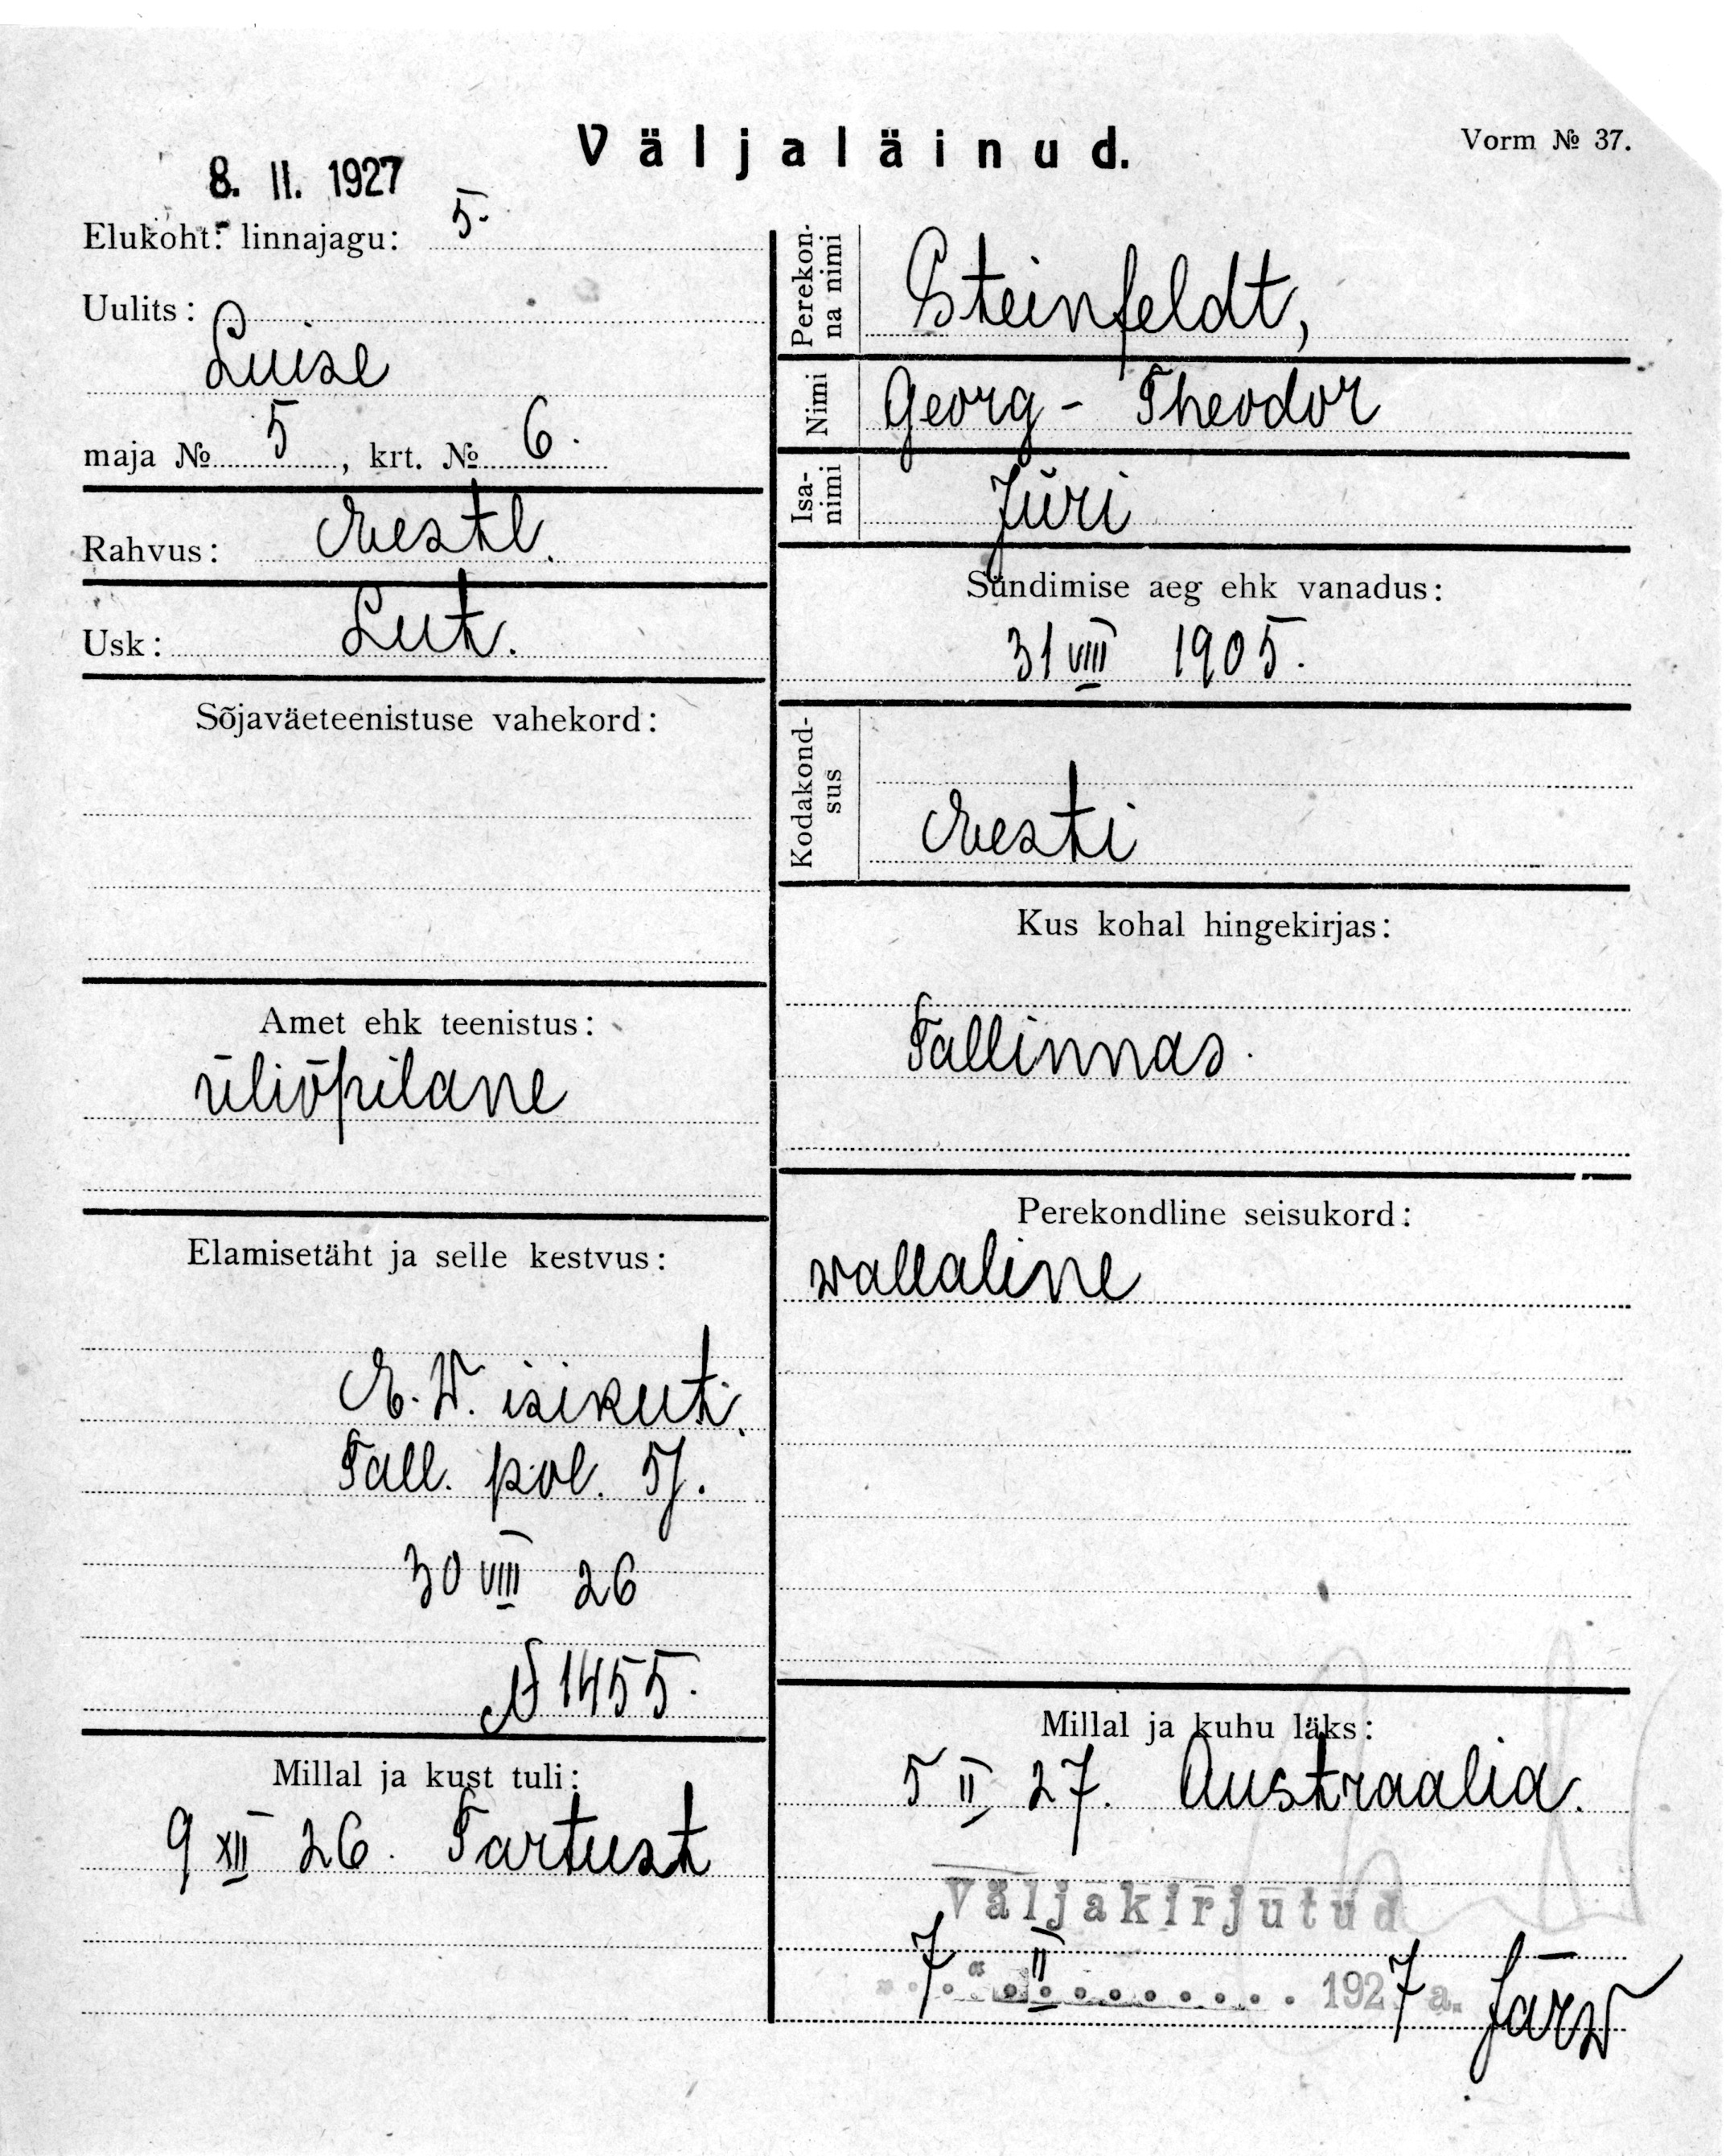 Väljaläinud.
Vorm № 37.
8. II. 1927
Elukoht: linnajagu: 5.
Uulits:
Luise
maja № 5, krt. № 6.
Rahvus: Eestl.
Usk: Lut.
Sõjaväeteenistuse vahekord:
Amet ehk teenistus:
üliõpilane
Elamisetäht ja selle kestvus:
E. W. isikut.
Tall. pol. 5j.
30 VIII 26
N 1455.
Millal ja kust tuli:
9 XII 26. Tartust
Perekonna nimi Steinfeldt,
Nimi Georg - Theodor
Isanimi Jüri
Sündimise aeg ehk vanadus:
31 VIII 1905.
Kodakondsus
Eesti
Kus kohal hingekirjas:
Tallinnas.
Perekondline seisukord:
wallaline
Millal ja kuhu läks:
5 II 27. Austraalia.
Väljakirjutud
7 II 1927 a. Järw